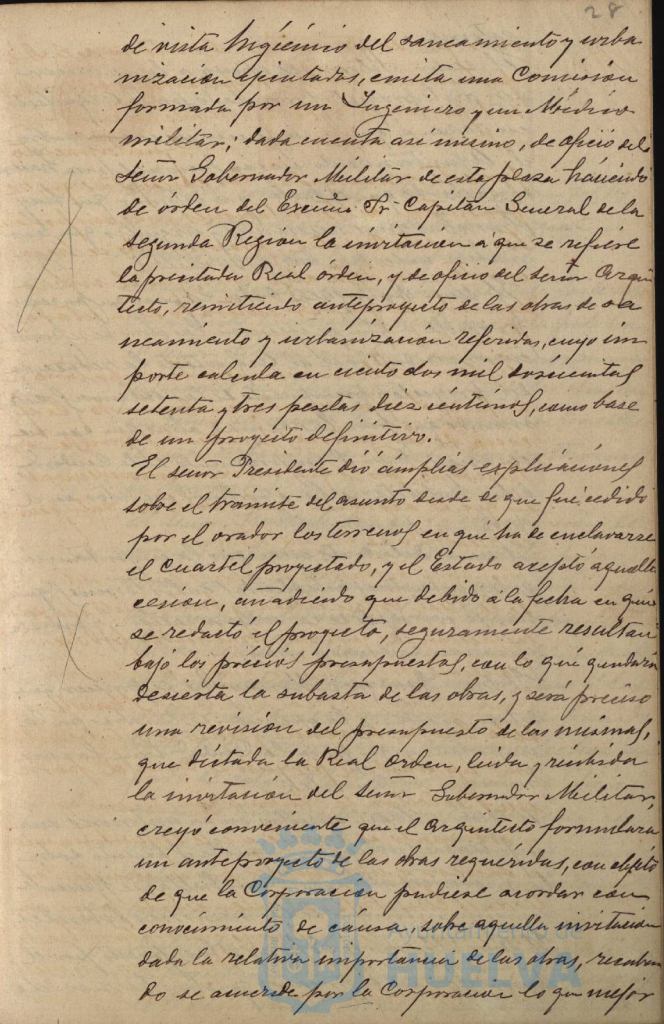 28
de vista higiénico del saneamiento y urba
nización ejecutadas, emita una Comision
formada por un Ingeniero y un Médico
militar; dada cuenta asi mismo, de oficio del
Señor Gobernador Militar de esta plaza haciendo
de órden del Excmo Sr. Capitan General de la
segunda Region la invitacion á que se refiere
la precitada Real órden, y de oficio del señor Arqui
tecto, remitiendo anteproyecto de las obras de sa
neamiento y urbanización referidas, cuyo im
porte calcula en ciento dos mil doscientas
setenta y tres pesetas diez céntimos, como base
de un proyecto definitivo.
El señor Presidente dió ámplias explicaciones
sobre el trámite del asunto desde de que fué cedido
por el orador los terrenos en que ha de enclavarse
el Cuartel proyectado, y el Estado aceptó aquella
cesion, añadiendo que debido á la fecha en que
se redactó el proyecto, seguramente resultan
bajó los précios presupuestas, con lo que quedaria
desierta la subasta de las obras, y será preciso
una revision del presupuesto de las mismas,
que dictada la Real orden, leida y recibida
la invitacion del Señor Gobernador Militar,
creyó conveniente que el arquitecto formulara
un anteproyecto de las obras requeridas, con objeto
de que la Corporacion pudiese acordar con
conocimiento de cáusa, sobe aquella invitacion
dada la relativa importancia de las obras,
do se acuerde por la Corporacion lo que mejor
HUELVA